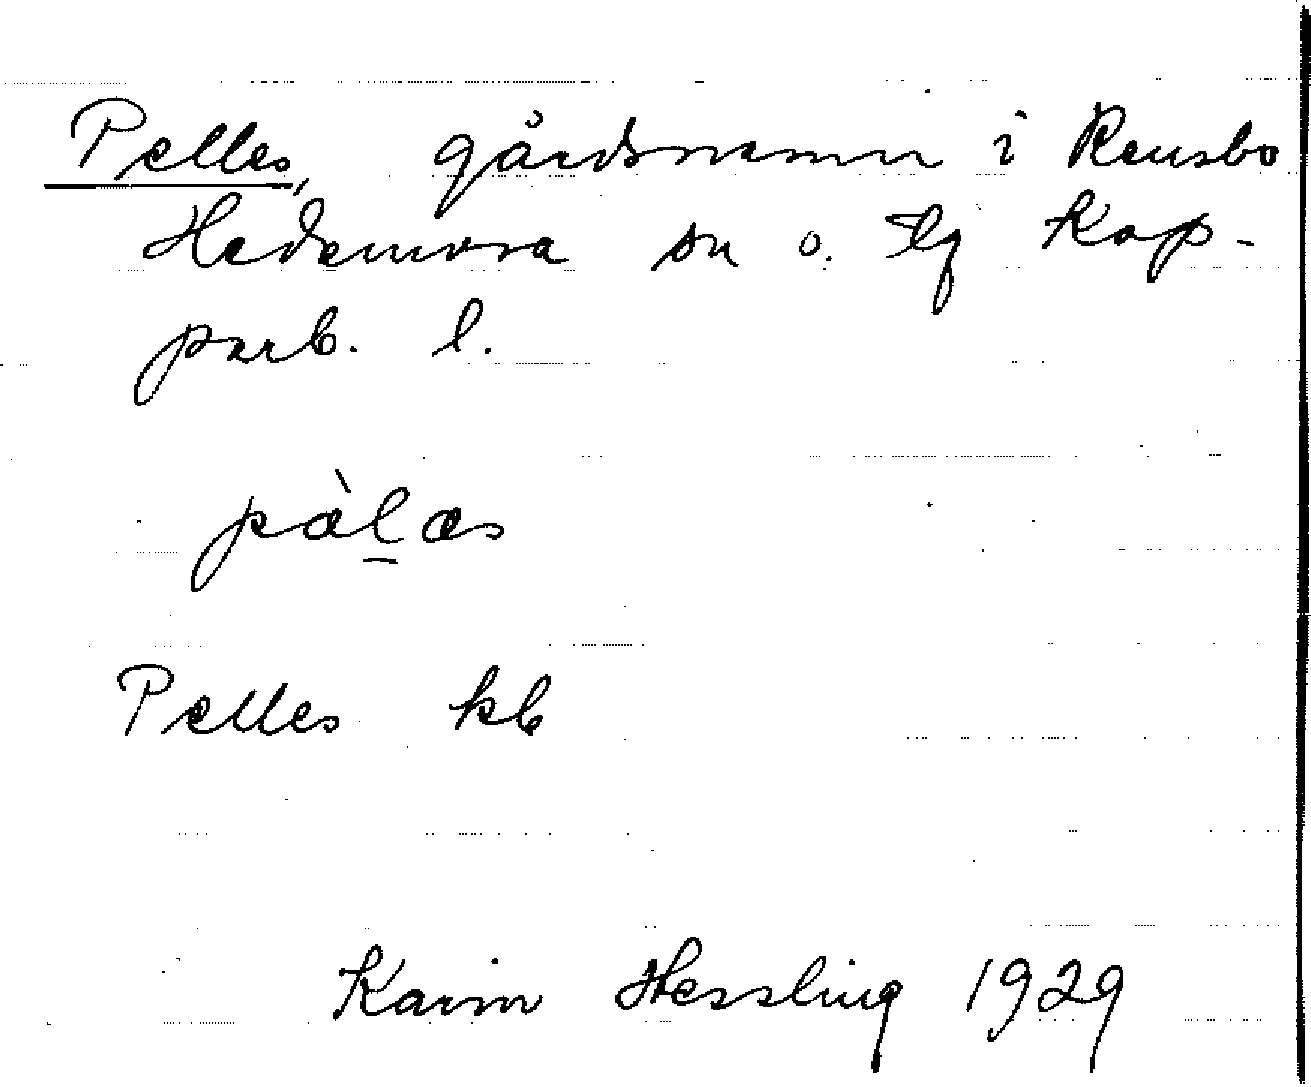 Pelles, gårdsnamn i Rensbo
Hedemora sn o. tlg Kop-
parb. l.
pàl̲æs
Pelles kb
Karin Hessling 1929